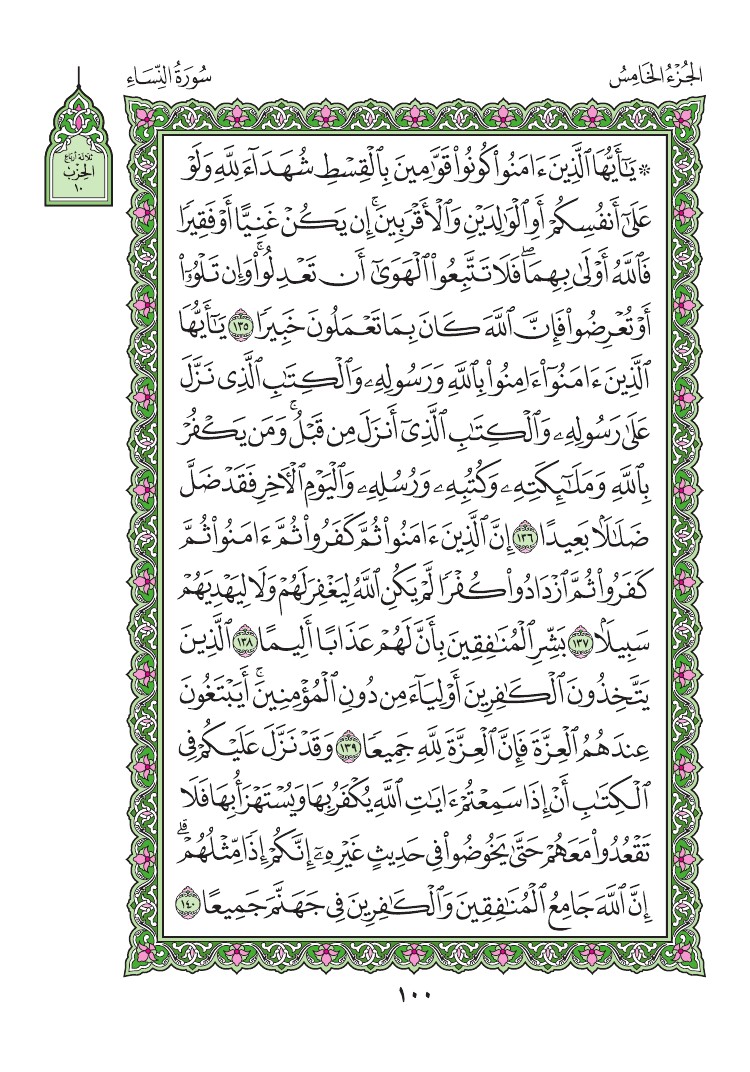 الجُزْءُ الخَامِسُ
سُورَةُ النِّسَاءِ
ثلاثة أرباع
الحِزْب
١٠
۞ يَٰٓأَيُّهَا ٱلَّذِينَ ءَامَنُوا۟ كُونُوا۟ قَوَّٰمِينَ بِٱلْقِسْطِ شُهَدَآءَ لِلَّهِ وَلَوْ
عَلَىٰٓ أَنفُسِكُمْ أَوِ ٱلْوَٰلِدَيْنِ وَٱلْأَقْرَبِينَ ۚ إِن يَكُنْ غَنِيًّا أَوْ فَقِيرًا
فَٱللَّهُ أَوْلَىٰ بِهِمَا ۖ فَلَا تَتَّبِعُوا۟ ٱلْهَوَىٰٓ أَن تَعْدِلُوا۟ ۚ وَإِن تَلْوُۥٓا۟
أَوْ تُعْرِضُوا۟ فَإِنَّ ٱللَّهَ كَانَ بِمَا تَعْمَلُونَ خَبِيرًا ١٣٥ يَٰٓأَيُّهَا
ٱلَّذِينَ ءَامَنُوٓا۟ ءَامِنُوا۟ بِٱللَّهِ وَرَسُولِهِۦ وَٱلْكِتَٰبِ ٱلَّذِى نَزَّلَ
عَلَىٰ رَسُولِهِۦ وَٱلْكِتَٰبِ ٱلَّذِىٓ أَنزَلَ مِن قَبْلُ ۚ وَمَن يَكْفُرْ
بِٱللَّهِ وَمَلَٰٓئِكَتِهِۦ وَكُتُبِهِۦ وَرُسُلِهِۦ وَٱلْيَوْمِ ٱلْءَاخِرِ فَقَدْ ضَلَّ
ضَلَٰلًۢا بَعِيدًا ١٣٦ إِنَّ ٱلَّذِينَ ءَامَنُوا۟ ثُمَّ كَفَرُوا۟ ثُمَّ ءَامَنُوا۟ ثُمَّ
كَفَرُوا۟ ثُمَّ ٱزْدَادُوا۟ كُفْرًا لَّمْ يَكُنِ ٱللَّهُ لِيَغْفِرَ لَهُمْ وَلَا لِيَهْدِيَهُمْ
سَبِيلًۢا ١٣٧ بَشِّرِ ٱلْمُنَٰفِقِينَ بِأَنَّ لَهُمْ عَذَابًا أَلِيمًا ١٣٨ ٱلَّذِينَ
يَتَّخِذُونَ ٱلْكَٰفِرِينَ أَوْلِيَآءَ مِن دُونِ ٱلْمُؤْمِنِينَ ۚ أَيَبْتَغُونَ
عِندَهُمُ ٱلْعِزَّةَ فَإِنَّ ٱلْعِزَّةَ لِلَّهِ جَمِيعًا ١٣٩ وَقَدْ نَزَّلَ عَلَيْكُمْ فِى
ٱلْكِتَٰبِ أَنْ إِذَا سَمِعْتُمْ ءَايَٰتِ ٱللَّهِ يُكْفَرُ بِهَا وَيُسْتَهْزَأُ بِهَا فَلَا
تَقْعُدُوا۟ مَعَهُمْ حَتَّىٰ يَخُوضُوا۟ فِى حَدِيثٍ غَيْرِهِۦٓ ۚ إِنَّكُمْ إِذًا مِّثْلُهُمْ ۗ
إِنَّ ٱللَّهَ جَامِعُ ٱلْمُنَٰفِقِينَ وَٱلْكَٰفِرِينَ فِى جَهَنَّمَ جَمِيعًا ١٤٠
١٠٠